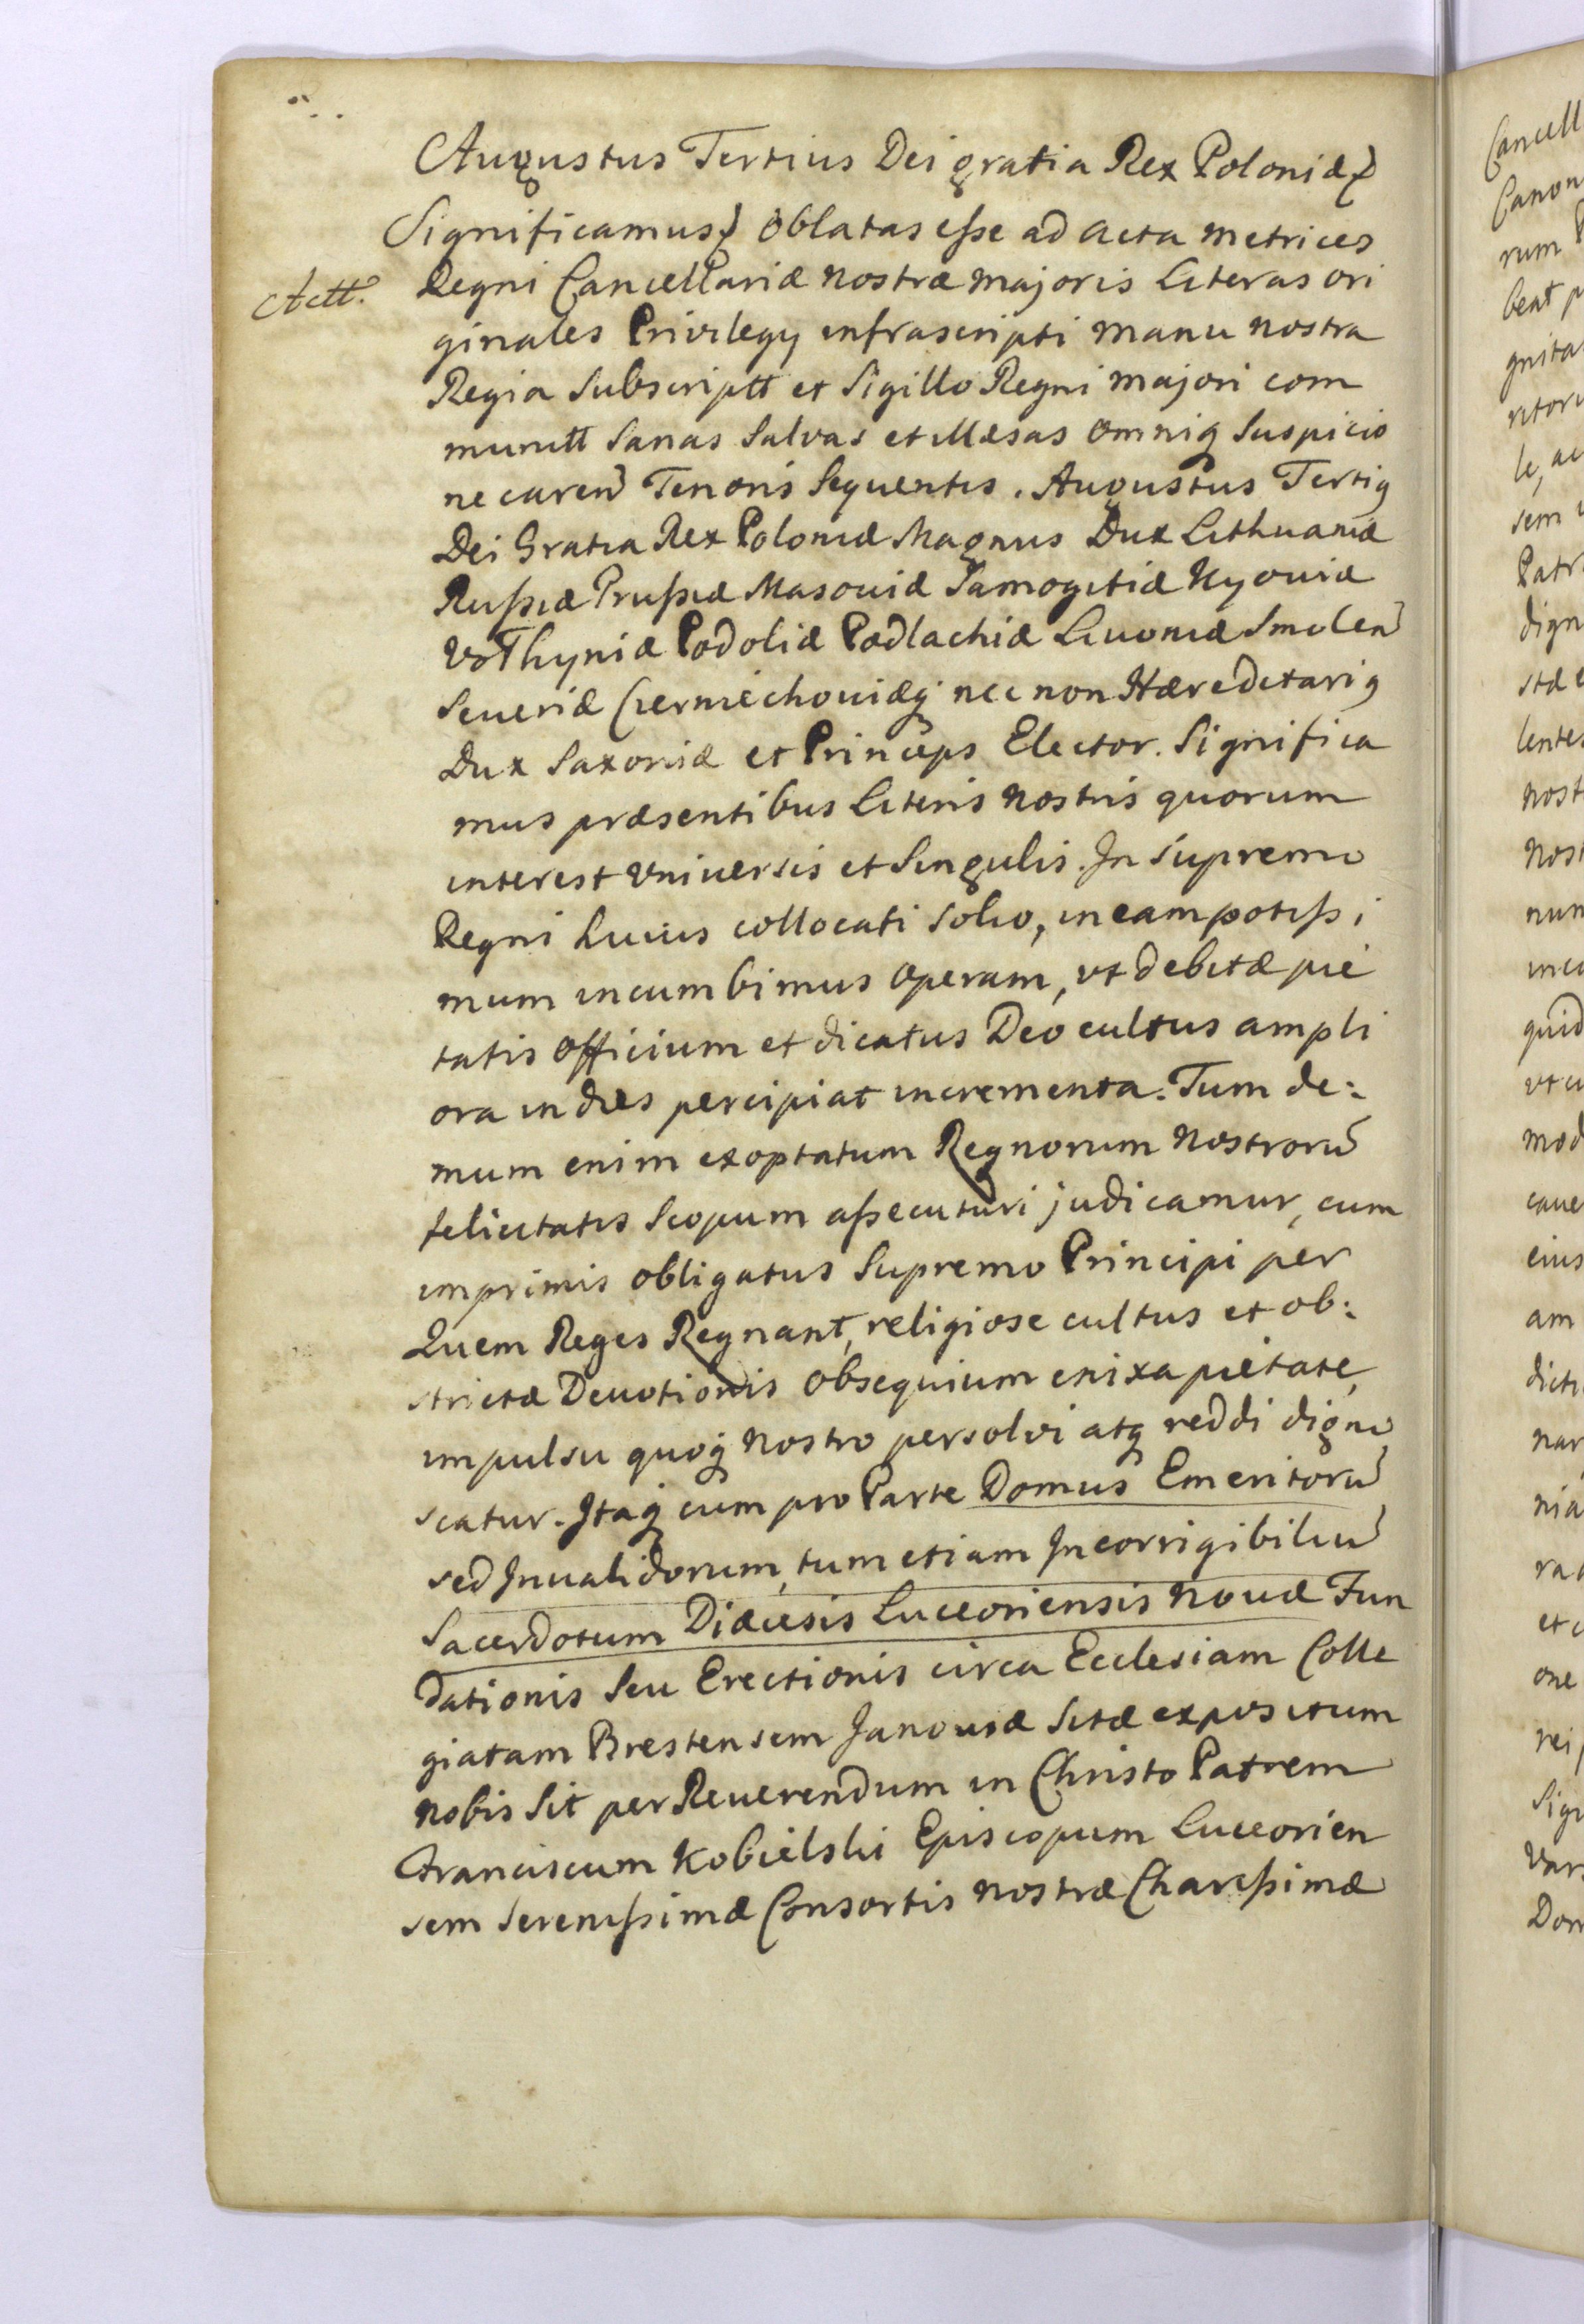 Augustus Tertius Dei gratia Rex Poloniæ
Significamus Oblatas eſse ad Acta Metrices
Actt.
Regni Cancellariæ nostræ majoris Literas ori
ginales Privilegy infrascripti manu nostra
Regia Subscriptt et Sigillo Regni majori com
munitt Sanas Salvas et illæsas omniq Suspicio
ne caren Tenoris Sequentis. Augustus Tertiq
Dei Gratia Rex Poloniæ Magnus Dux Lithuaniæ
Ruſsiæ Pruſsiæ Masoviæ Samogitiæ Kyoviæ
Volhyniæ Podoliæ Podlachiæ Livoniæ Smolen
Severiæ Czerniechoviæq nec non Hæreditariq
Dux Saxoniæ et Princeps Elector. Significa
mus præsentibus Literis nostris quorum
interest Vniversis et Singulis. In Supremo
Regni huius collocati Solio, in eam potiſsi
mum incumbimus operam, vt debitæ pie
tatis officium et dicatus Deo cultus ampli
ora in dies percipiat incrementa. Tum de:
mum enim exoptatum Regnorum nostrorū
felicitatis Scopum aſsecuturi judicamur, cum
imprimis obligatus Supremo Principi per
Quem Reges Regnant, religiose cultus et ob:
strictæ Devotionis obsequium enixa pietate,
impulsu quoq nostro persolvi atq reddi digno
scatur. Itaq cum pro Parte Domus Emeritorū
sed Invalidorum, tum etiam Incorrigibiliū
Sacerdotum Diæcesis Luceoriensis novæ Fun
dationis Seu Erectionis circa Ecclesiam Colle
giatam Brestensem Janoviæ Sitæ expositum
nobis Sit per Reverendum in Christo Patrem
Franciscum Kobielski Episcopum Luceorien
sem Sereniſsimæ Consortis nostræ Chariſsimæ